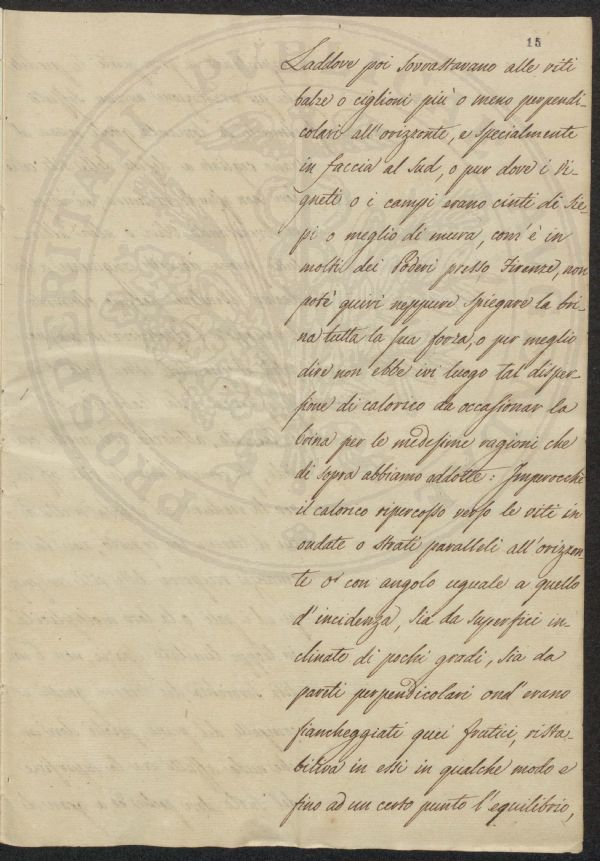 15
Laddove poi sovrastavano alle viti
balze o ciglioni più o meno perpendi-
colari all'orizzonte, e specialmente
in faccia al Sud, o pur dove i Vi-
gneti o i campi erano cinti di Sie-
pi o meglio di mura, com'è in
molti dei Poderi presso Firenze, non
potè quivi neppure spiegare la bri-
na tutta la sua forza, o per meglio
dire non ebbe ivi luogo tal disper-
sione di calorico da occasionar la
brina per le medesime ragioni che
di sopra abbiamo addotte: Imperocchè
il calorico ripercosso verso le viti in
ondate o strati paralleli all'orizzon-
te o con angolo uguale a quello
d'incidenza, sia da superfici in-
clinate di pochi gradi, sia da
pareti perpendicolari ond'erano
fiancheggiati quei frutici, rista-
biliva in essi in qualche modo e
fino ad un certo punto l'equilibrio,
PROSPERITATI PUBLICAE